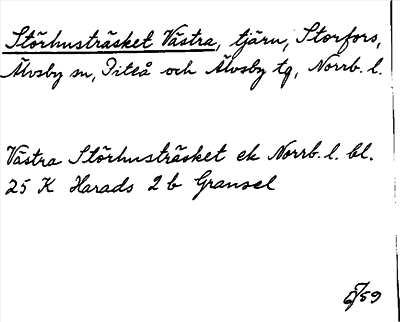 Störhusträsket Västra, tjärn, Storfors,
Älvsby sn, Piteå och Älvsby tg, Norrb. l.
Västra Störhusträsket ek Norrb. l. bl.
25 K Harads 2 b Gransel
5/59